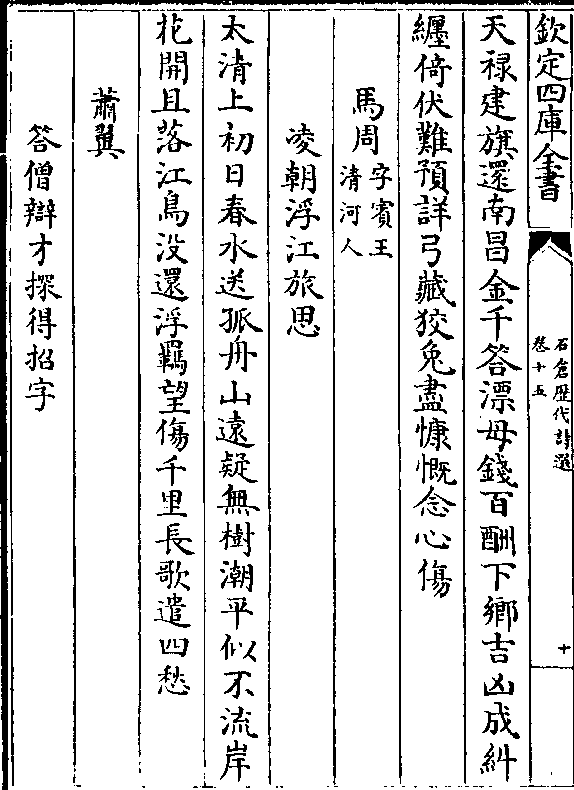 欽定四庫全書
石倉歷代詩選
卷十五
十
天禄建旗還南昌金千答漂母錢百酬下鄉吉凶成糾
纒倚伏難預詳弓藏狡兔盡慷慨念心傷
馬周字賓王
清河人
凌朝浮江旅思
太清上初日春水送孤舟山遠疑無樹潮平似不流岸
花開且落江鳥没還浮羈望傷千里長歌遣四愁
蕭翼
答僧辯才探得招字